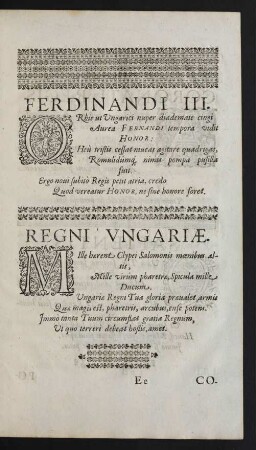 FERDINANDI III.
ORbis ut Ungarico nuper diademate cingi
Aurea FERNANDI tempora vidit
HONOR;
Heu tristis cessat niveas agitare quadrigas,
Romulidumq; nimis pompa pusilla
fuit.
Ergo novi subitò Regis petit atria, credo
Quod vereatur HONOR, ne sine honore foret.
REGNI VNGARIÆ.
MIlle hærent Clypei Salomonis mœnibus al-
tis,
Mille virûm pharetræ, Spicula mille
Ducum.
Ungariæ Regni Tua gloria prævalet armis
Quæ magis est, pharetris, arcubus, ense potens.
Immò tanta Tuum circumstat gratia Regnum,
Ut quo terreri debeat hostis, amet.
Ee
CO-